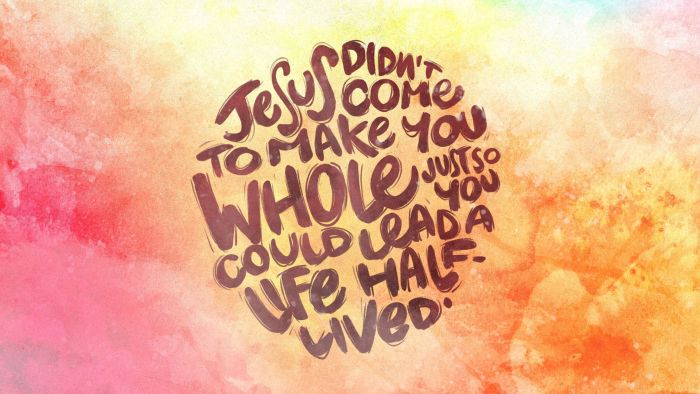 JESUS DIDN'T
COME
TO MAKE YOU
WHOLE JUST SO
YOU
COULD LEAD A
LIFE HALF-
LIVED.